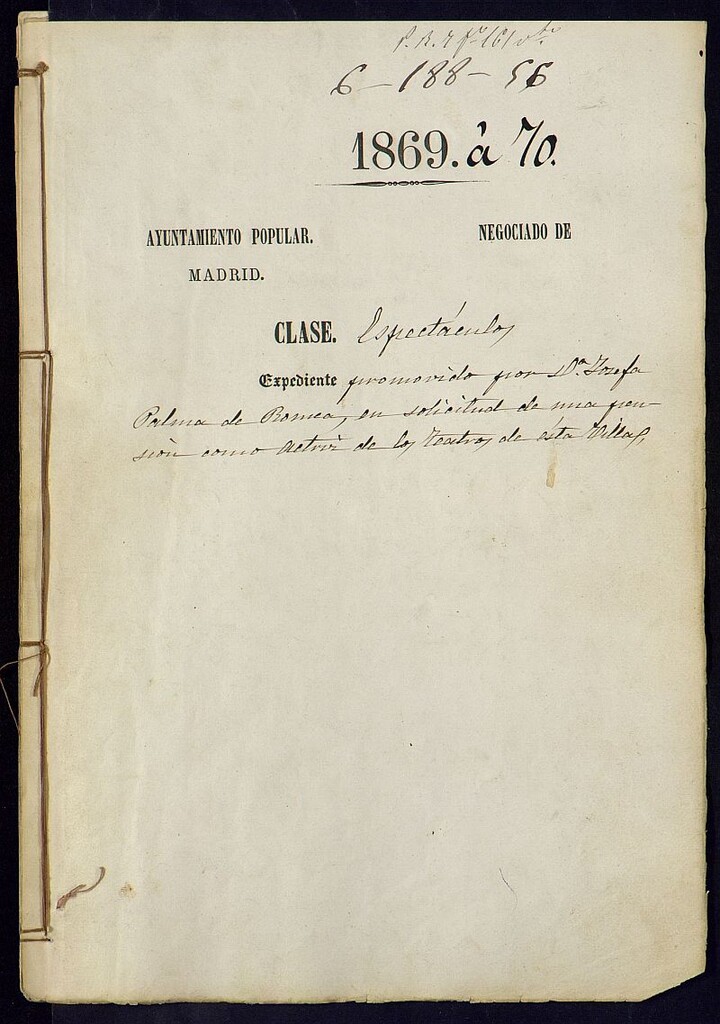 P. R. 7 fº 161 vto
6 - 188 - 56
1869. á 70.
AYUNTAMIENTO POPULAR. NEGOCIADO DE
MADRID.
CLASE. Espectáculos
Expediente promovido por Dª. Josefa
Palma de Romea, en solicitud de una pen-
sión como Actriz de los Teatros de ésta Villa,